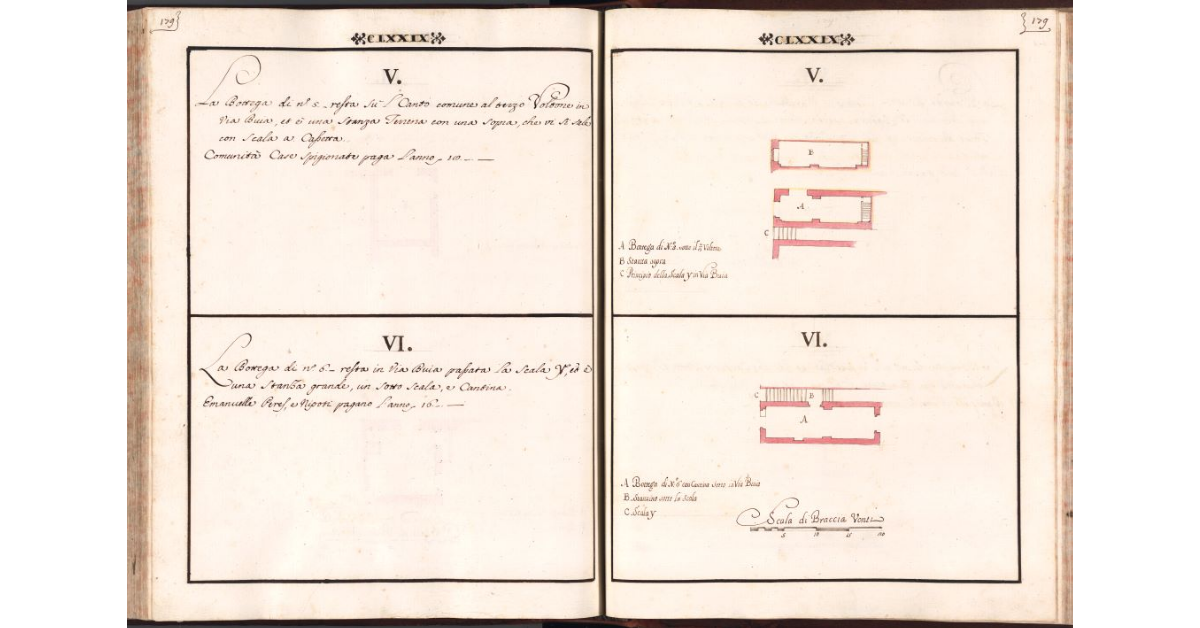 179
CLXXIX
V.
La Bottega di n.º 5 resta su 'l Canto comune al terzo Voltone in
Via Buia, et è una Stanza Terrena con una sopra, che vi si sale
con Scala a
Comunità Case spigionate paga l'anno 10
VI.
La Bottega di n.º 6 resta in Via Buia passata la Scala Y, ed è
una Stanza grande, un Sotto Scala, e Cantina.
Emanuelle Peres, e Nipoti pagano l'anno 16
179
CLXXIX
V.
B
A
C
A Bottega di Nº 5 sotto il
B Stanza sopra
C Principio della Scala Y in Via Buia
VI.
C
B
A
A Bottega di Nº 6 con Cantina sotto in Via Buia
B sotto la Scala
C Scala Y
Scala di Braccia Venti
5
10
15
20